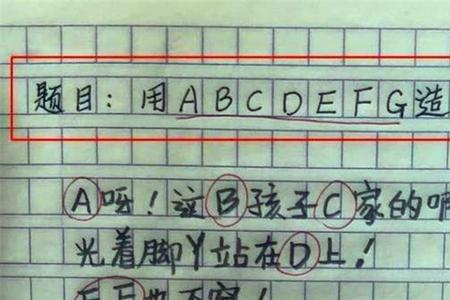 题目：用ABCDEFG造
A呀！这B孩子C家的
光着脚丫站在D上！